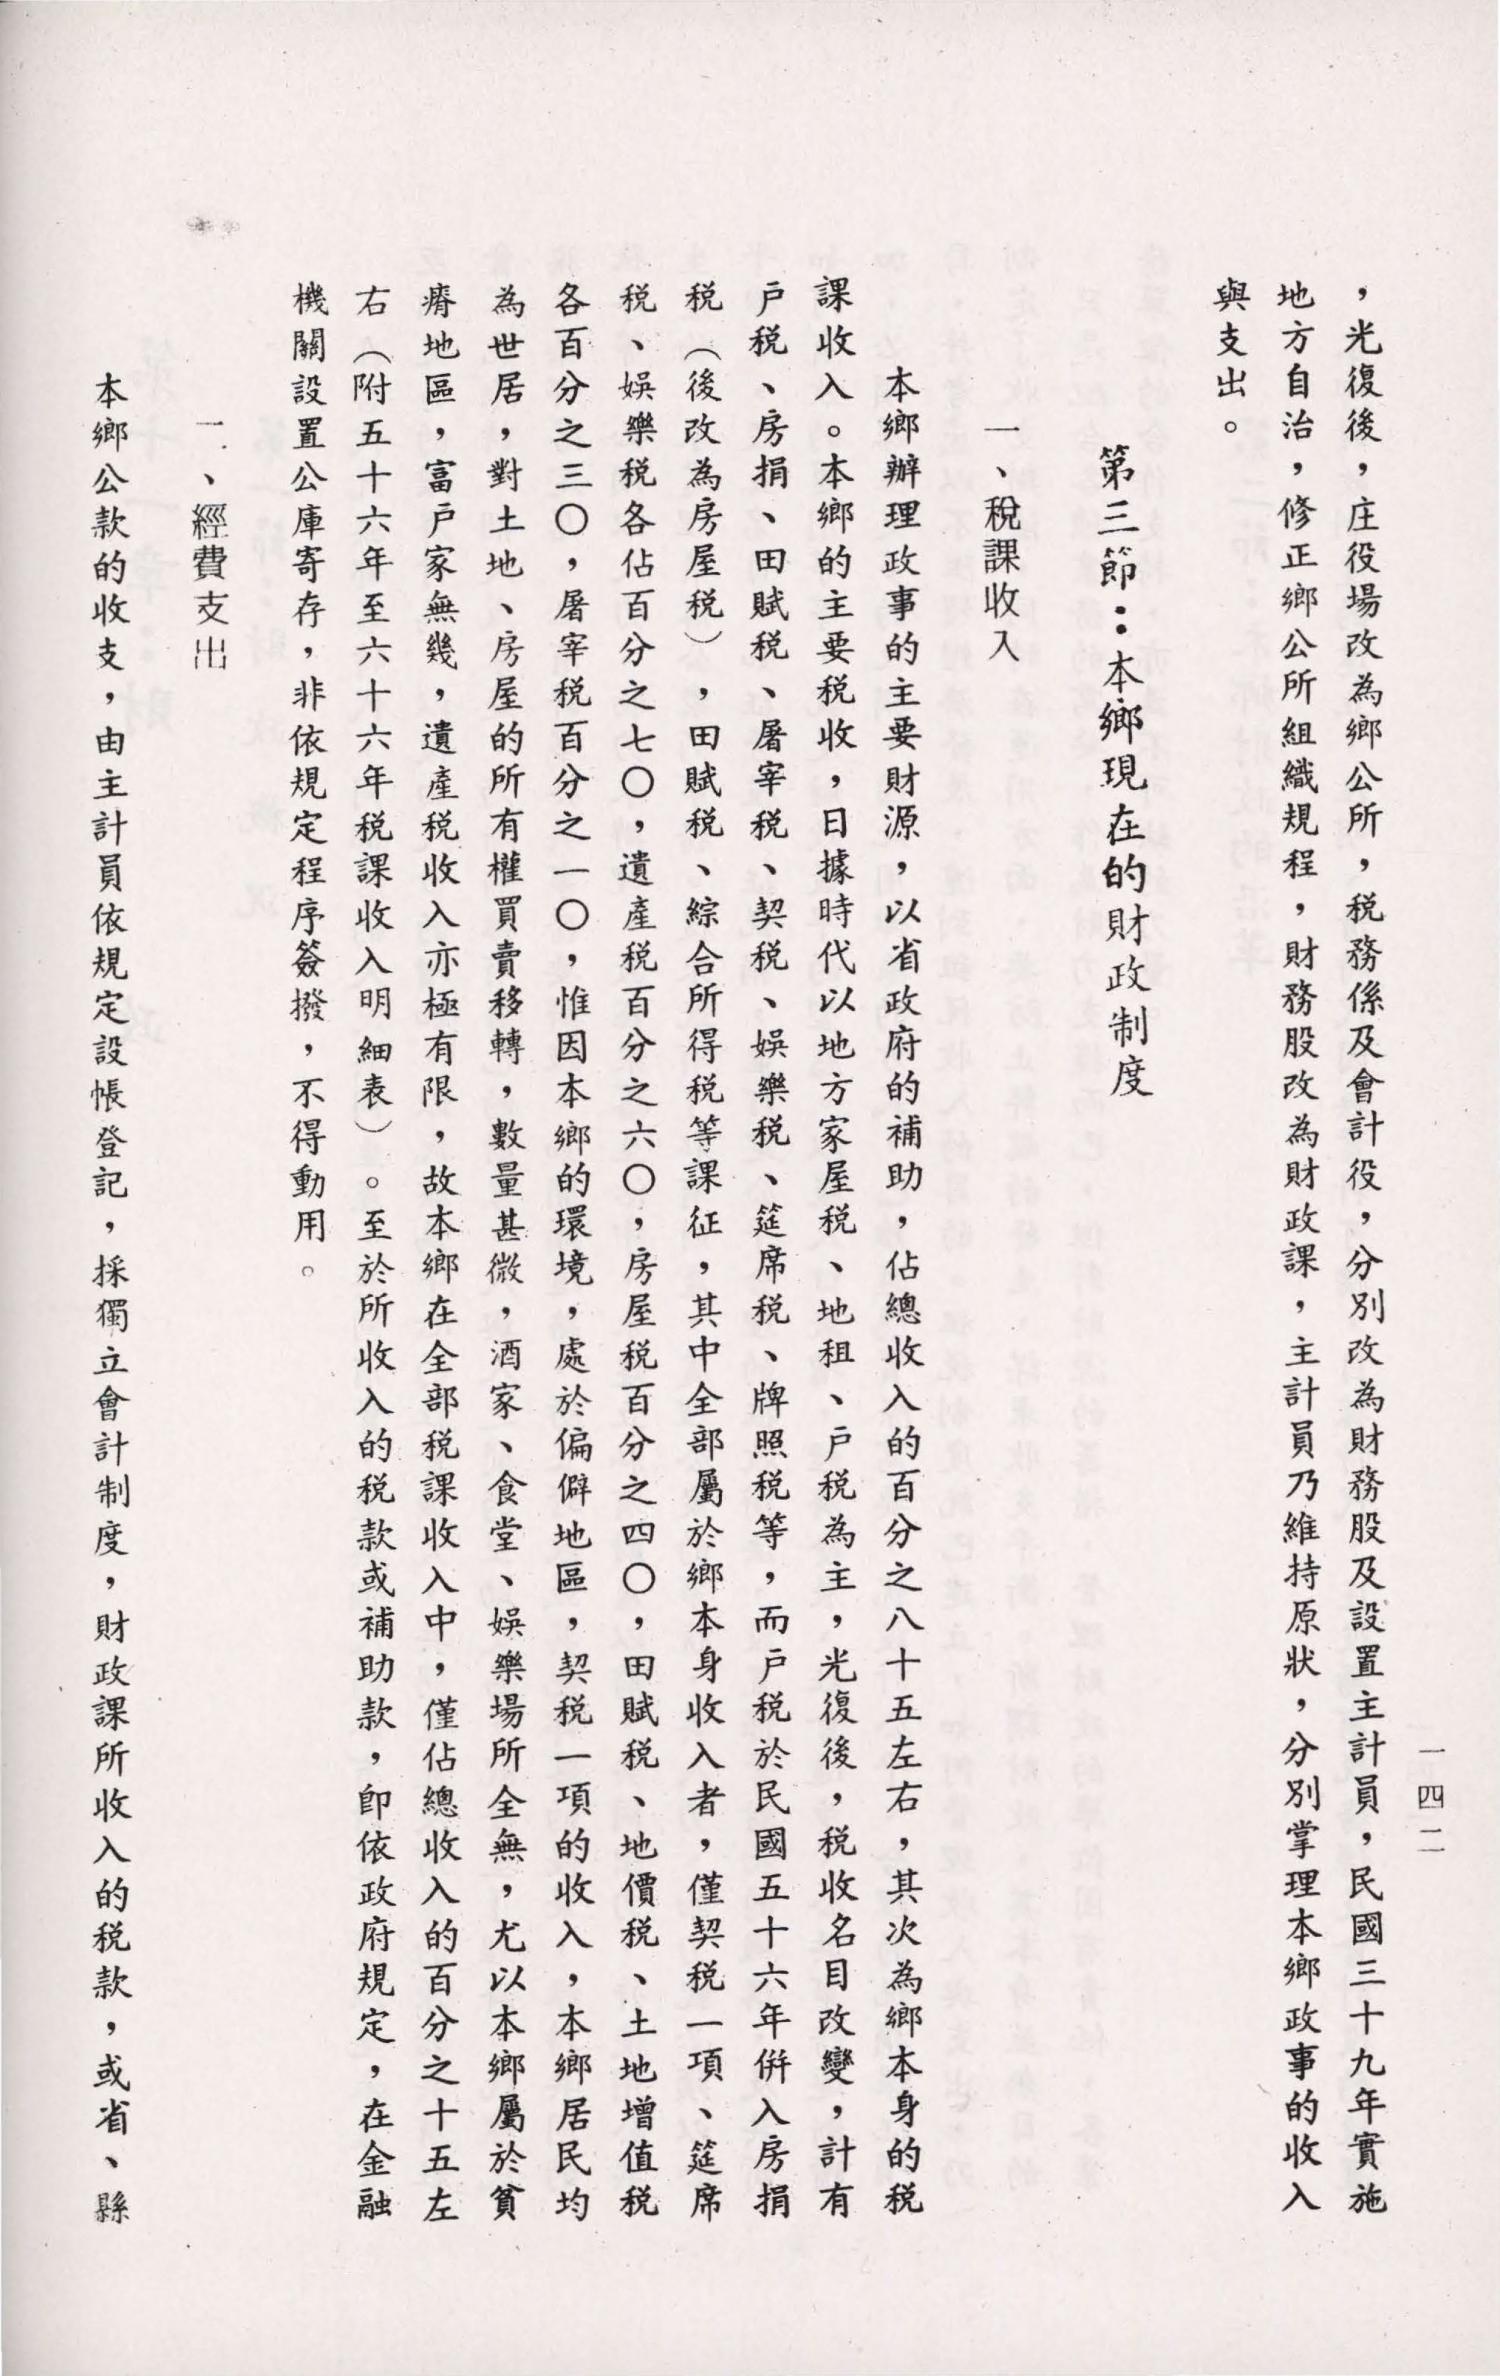 ，光復後，庄役場改為鄉公所，稅務係及會計役，分別改為財務股及設置主計員，民國三十九年實施
地方自治，修正鄉公所組織規程，財務股改為財政課，主計員乃維持原狀，分別掌理本鄉政事的收入
與支出。
第三節：本鄉現在的財政制度
一、稅課收入
本鄉辦理政事的主要財源，以省政府的補助，佔總收入的百分之八十五左右，其次為鄉本身的稅
課收入。本鄉的主要稅收，日據時代以地方家屋稅、地租、戶稅為主，光復後，稅收名目改變，計有
戶稅、房捐、田賦稅、屠宰稅、契稅、娛樂稅、筵席稅、牌照稅等，而戶稅於民國五十六年併入房捐
稅（後改為房屋稅），田賦稅、綜合所得稅等課征，其中全部屬於鄉本身收入者，僅契稅一項、筵席
稅、娛樂稅各佔百分之七〇，遺產稅百分之六〇，房屋稅百分之四〇，田賦稅、地價稅、土地增值稅
各百分之三〇，屠宰稅百分之一〇，惟因本鄉的環境，處於偏僻地區，契稅一項的收入，本鄉居民均
為世居，對土地、房屋的所有權買賣移轉，數量甚微，酒家、食堂、娛樂場所全無，尤以本鄉屬於貧
瘠地區，富戶家無幾，遺產稅收入亦極有限，故本鄉在全部稅課收入中，僅佔總收入的百分之十五左
右（附五十六年至六十六年稅課收入明細表）。至於所收入的稅款或補助款，即依政府規定，在金融
機關設置公庫寄存，非依規定程序簽撥，不得動用。
二、經費支出
本鄉公款的收支，由主計員依規定設帳登記，採獨立會計制度，財政課所收入的稅款，或省、縣
一四二